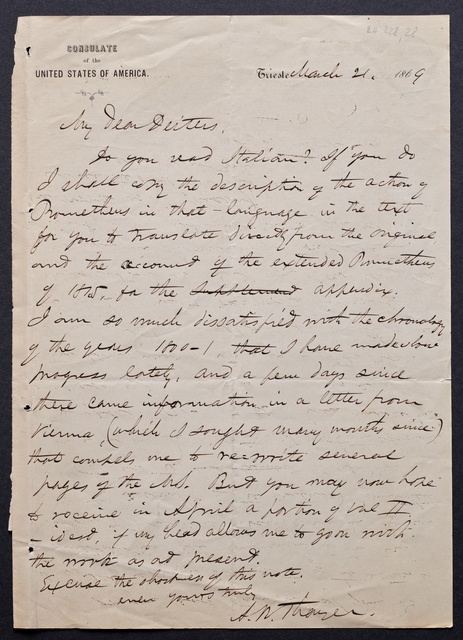 CONSULATE
of the
UNITED STATES OF AMERICA.
Trieste March 21. 1869
My Dear Deiters,
Do you read Italian? If you do
I shall copy the description of the action of
Prometheus in that language in the text
for you to translate directly from the original
and the account of the extended Prometheus
of 1815, for the Supplement appendix.
I am so much dissatisfied with the chronology
of the years 1800-1, that I have made slow
progress lately, and a few days since
there came information in a letter from
Vienna, (which I sought many months since)
that compels me to re-write several
pages of the Ms. But you may now hope
to receive in April a portion of Vol II
- id est, if my head allows me to go on with
the work as at present.
Excuse the shortness of this note.
ever yours truly
A. W. Thayer.